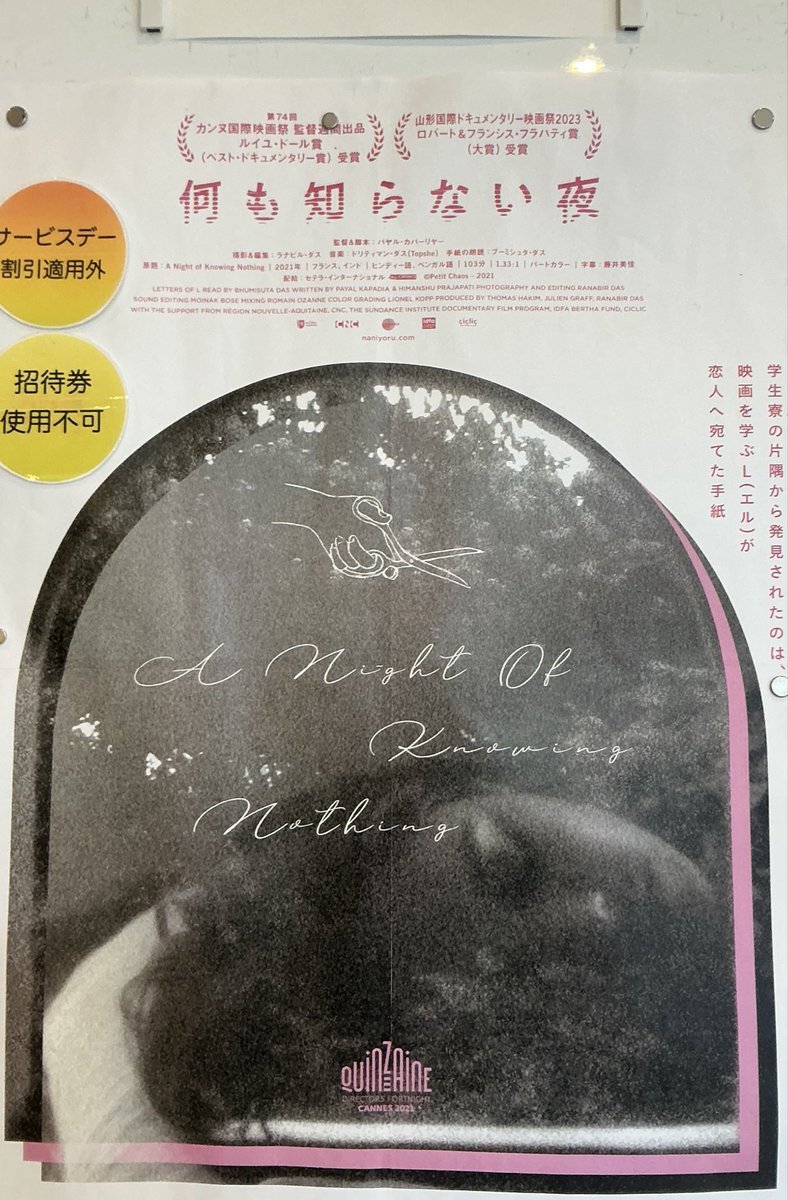 第74回
カンヌ国際映画祭 監督週間出品
ルイユ・ドール賞
（ベスト・ドキュメンタリー賞）受賞
山形国際ドキュメンタリー映画祭2023
ロバート&フランシス・フラハティ賞
（大賞）受賞
何も知らない夜
監督&脚本：パヤル・カパーリヤー
撮影&編集：ラナビル・ダス 音楽：ドリティマン・ダス(Topshe) 手紙の朗読：ブーミシュタ・ダス
原題：A Night of Knowing Nothing | 2021年 | フランス、インド | ヒンディー語、ベンガル語 | 103分 | 1.33:1 | パートカラー | 字幕：藤井美佳
配給：セテラ・インターナショナル ©Petit Chaos – 2021
LETTERS OF L READ BY BHUMISUTA DAS WRITTEN BY PAYAL KAPADIA & HIMANSHU PRAJAPATI PHOTOGRAPHY AND EDITING RANABIR DAS
SOUND EDITING MOINAK BOSE MIXING ROMAIN OZANNE COLOR GRADING LIONEL KOPP PRODUCED BY THOMAS HAKIM, JULIEN GRAFF, RANABIR DAS
WITH THE SUPPORT FROM RÉGION NOUVELLE-AQUITAINE, CNC, THE SUNDANCE INSTITUTE DOCUMENTARY FILM PROGRAM, IDFA BERTHA FUND, CICLIC
CNC
ciclic
naniyoru.com
サービスデー
割引適用外
招待券
使用不可
学生寮の片隅から発見されたのは、
映画を学ぶL(エル)が
恋人へ宛てた手紙
A Night Of
Knowing
Nothing
QUINZAINE
DIRECTORS FORTNIGHT
CANNES 2021